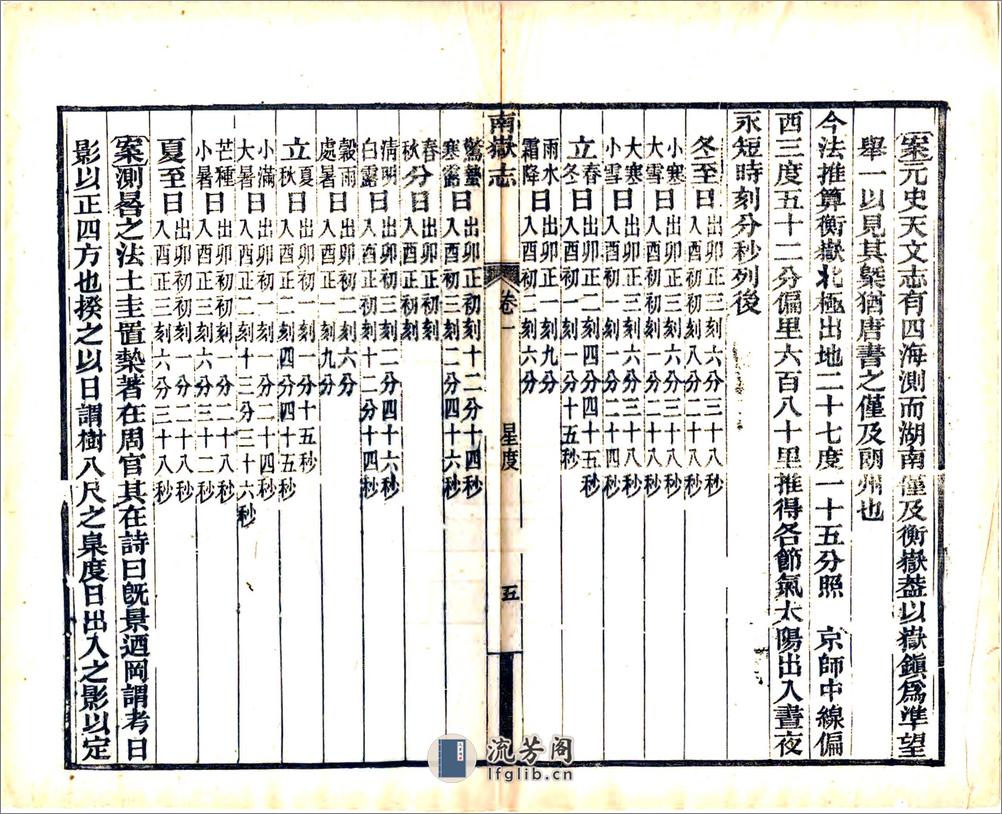 案元史天文志有四海測而湖南僅及衡嶽葢以嶽鎮爲準望
舉一以見其槩猶唐書之僅及朗州也
今法推算衡嶽北極出地二十七度一十五分照　京師中線偏
西三度五十二分偏里六百八十里推得各節氣太陽出入晝夜
永短時刻分秒列後
冬至日出卯正三刻六分三十八秒
入酉初初刻八分二十八秒
小寒
大寒日出卯正二刻八分一十八秒
大雪
小雪日入酉初一刻六分四十四秒
立春
立冬日出卯正二刻四分四十五秒
入酉初一刻一十分一十五秒
雨水
霜降日出卯正一刻九分
入酉初二刻六分
南嶽志
卷一
星度
五
驚蟄
寒露日出卯正初刻十二分十四秒
入酉初三刻二分四十六秒
春分
秋分日出卯正初刻
入酉正初刻
清明
白露日出卯初三刻二分四十六秒
入酉正初刻十二分十四秒
穀雨
處暑日出卯初二刻六分
入酉正一刻九分
立夏
立秋日出卯初一刻一分十五秒
入酉正二刻四分四十五秒
小滿
大暑日出卯初一刻一分二十四秒
入酉正二刻十三分三十六秒
芒種
小暑日出卯初初刻一分二十八秒
入酉正三刻六分三十二秒
夏至日出卯初初刻八分二十八秒
入酉正三刻六分三十八秒
案測晷之法土圭置槷著在周官其在詩曰旣景迺岡謂考日
影以正四方也揆之以日謂樹八尺之臬度日出入之影以定
流芳阁
lfglib.cn